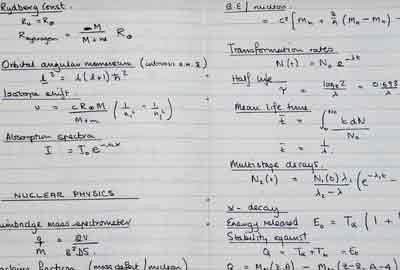 Rydberg Const.
R∞ = R∞
R_hydrogen = M / (M + m) R∞
Orbital angular momentum
l² = l(l+1) ħ²
Isotope shift.
ν = c R∞ M / (M+m) (1/n₁² - 1/n₂²)
Absorption spectra
I = I₀ e^-
NUCLEAR PHYSICS
Bainbridge mass spectrometer
q/M = 2V / B²DS
fraction (mass defect / nucleon)
B.E / nucleon
= c² [ Mₙ + (Mₙ - Mₙ) -
Transformation rates
N(t) = N₀ e^-λt
Half life
τ = logₑ2 / λ = 0.693 / λ
Mean life time
t̄ = ∫₀^N₀ t dN / N₀
t̄ = 1/λ
Multistage decays.
N₂(t) = N₁(0) λ₁ / (λ₂ - λ₁) ( e^-λ₁t -
α - decay
Energy released E₀ = Tα ( 1 +
Stability against
Q = Tα + Tb = E₀
Q = (Z, A) - (Z-2, A-4)